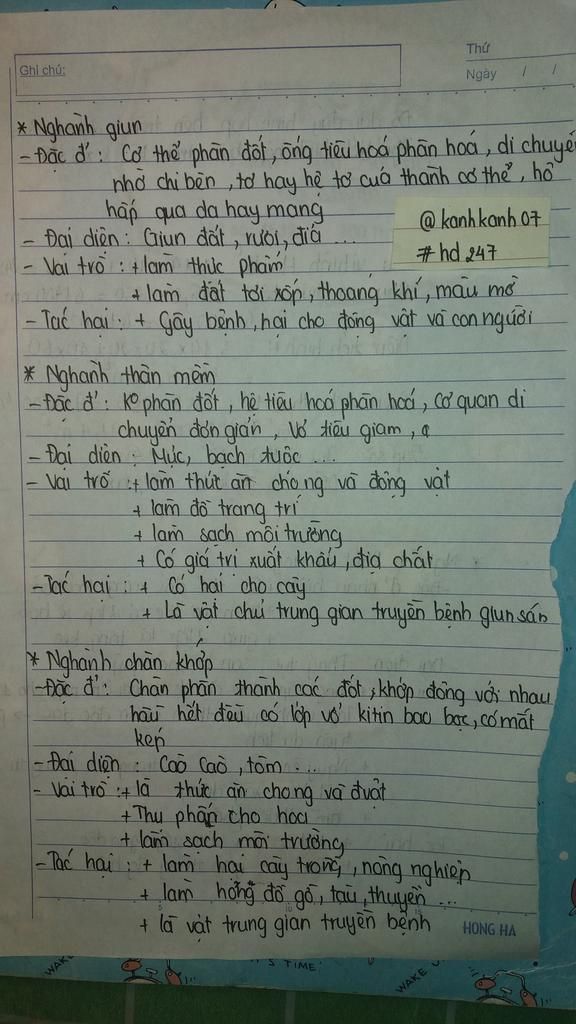 Thứ
Ghi chú:
Ngày / /
* Nghành giun
- Đặc đ': Cơ thể phân đốt, ống tiêu hoá phân hoá, di chuyể
nhờ chi bên, tơ hay hệ tơ cuả thành cơ thể, hô
hấp qua da hay mang
@kanhkanh07
#hd247
- Đại diện: Giun đất, rươi, đỉa ...
- Vai trò: + làm thực phẩm
+ làm đất tơi xốp, thoáng khí, màu mỡ
- Tác hại: + Gây bệnh, hại cho động vật và con người
* Nghành thân mềm
- Đặc đ': Ko phân đốt, hệ tiêu hoá phân hoá, cơ quan di
chuyển đơn giản, Vỏ tiêu giảm,
- Đại diện: Mực, bạch tuộc ...
- Vai trò: + làm thức ăn cho ng và động vật
+ làm đồ trang trí
+ làm sạch môi trường
+ Có giá trị xuất khẩu, địa chất
- Tác hại: + Có hại cho cây
+ Là vật chủ trung gian truyền bệnh giun sán
* Nghành chân khớp
- Đặc đ': Chân phân thành các đốt, khớp động với nhau
hầu hết đều có lớp vỏ kitin bao bọc, có mắt
kép
- Đại diện: Cào Cào, tôm ...
- Vai trò: + là thức ăn cho ng và đvật
+ Thụ phấn cho hoa
+ làm sạch môi trường
- Tác hại: + làm hại cây trồng, nông nghiệp
+ làm hỏng đồ gỗ, tàu, thuyền ...
+ là vật trung gian truyền bệnh
HONG HA
WAK
'S TIME
WAKE U